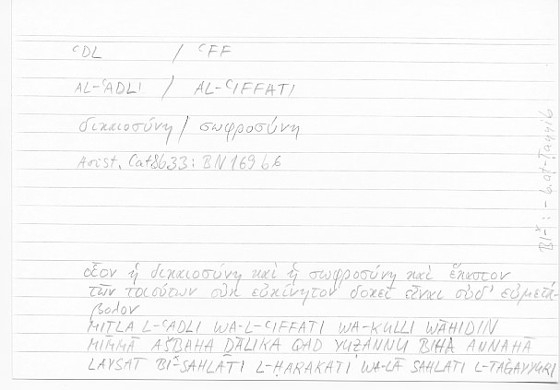 ʿDL / ʿFF
AL-ʿADLI / AL-ʿIFFATI
δικαιοσύνη / σωφροσύνη
Arist. Cat 8b33: BN 169 b6
οἷον ἡ δικαιοσύνη καὶ ἡ σωφροσύνη καὶ ἕκαστον
τῶν τοιούτων οὐκ εὐκίνητον δοκεῖ εἶναι οὐδ' εὐμετά-
βολον
MIṮLA L-ʿADLI WA-L-ʿIFFATI WA-KULLI WĀḤIDIN
MIMMĀ AŠBAHA ḎĀLIKA QAD YUẒANNU BIHĀ ANNAHĀ
LAYSAT BI-*SAHLATI L-ḤARAKATI WA-LĀ SAHLATI L-TAĠAYYURI
BI-* : -